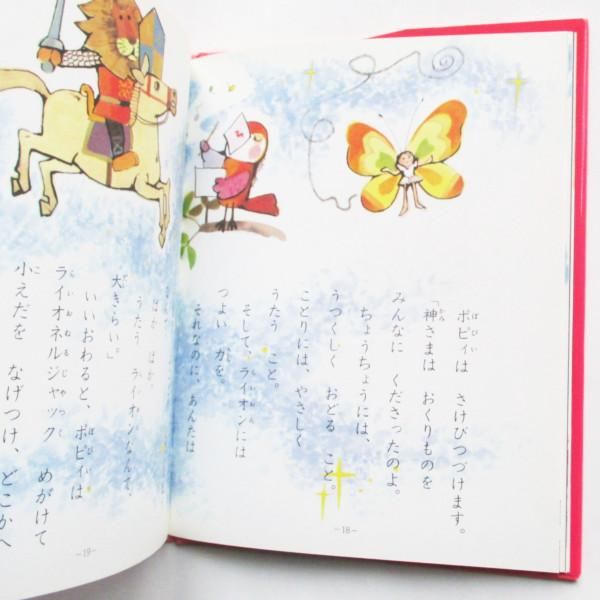 ポピィは さけびつづけます。
「神さまは おくりものを
みんなに くださったのよ。
ちょうちょうには、
うつくしく おどる こと。
ことりには、やさしく
うたう こと。
そして、ライオンには
つよい 力を。
それなのに、あんたは
－18－
うたう ライオンなんて、
大きらい。」
いいおわると、ポピィは
ライオネルジャック めがけて
小えだを なげつけ、どこかへ
－19－